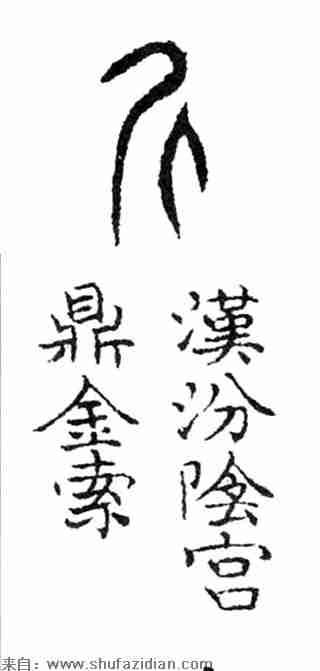 斤
漢汾陰宮
鼎金索
来自：www.shufazidian.com